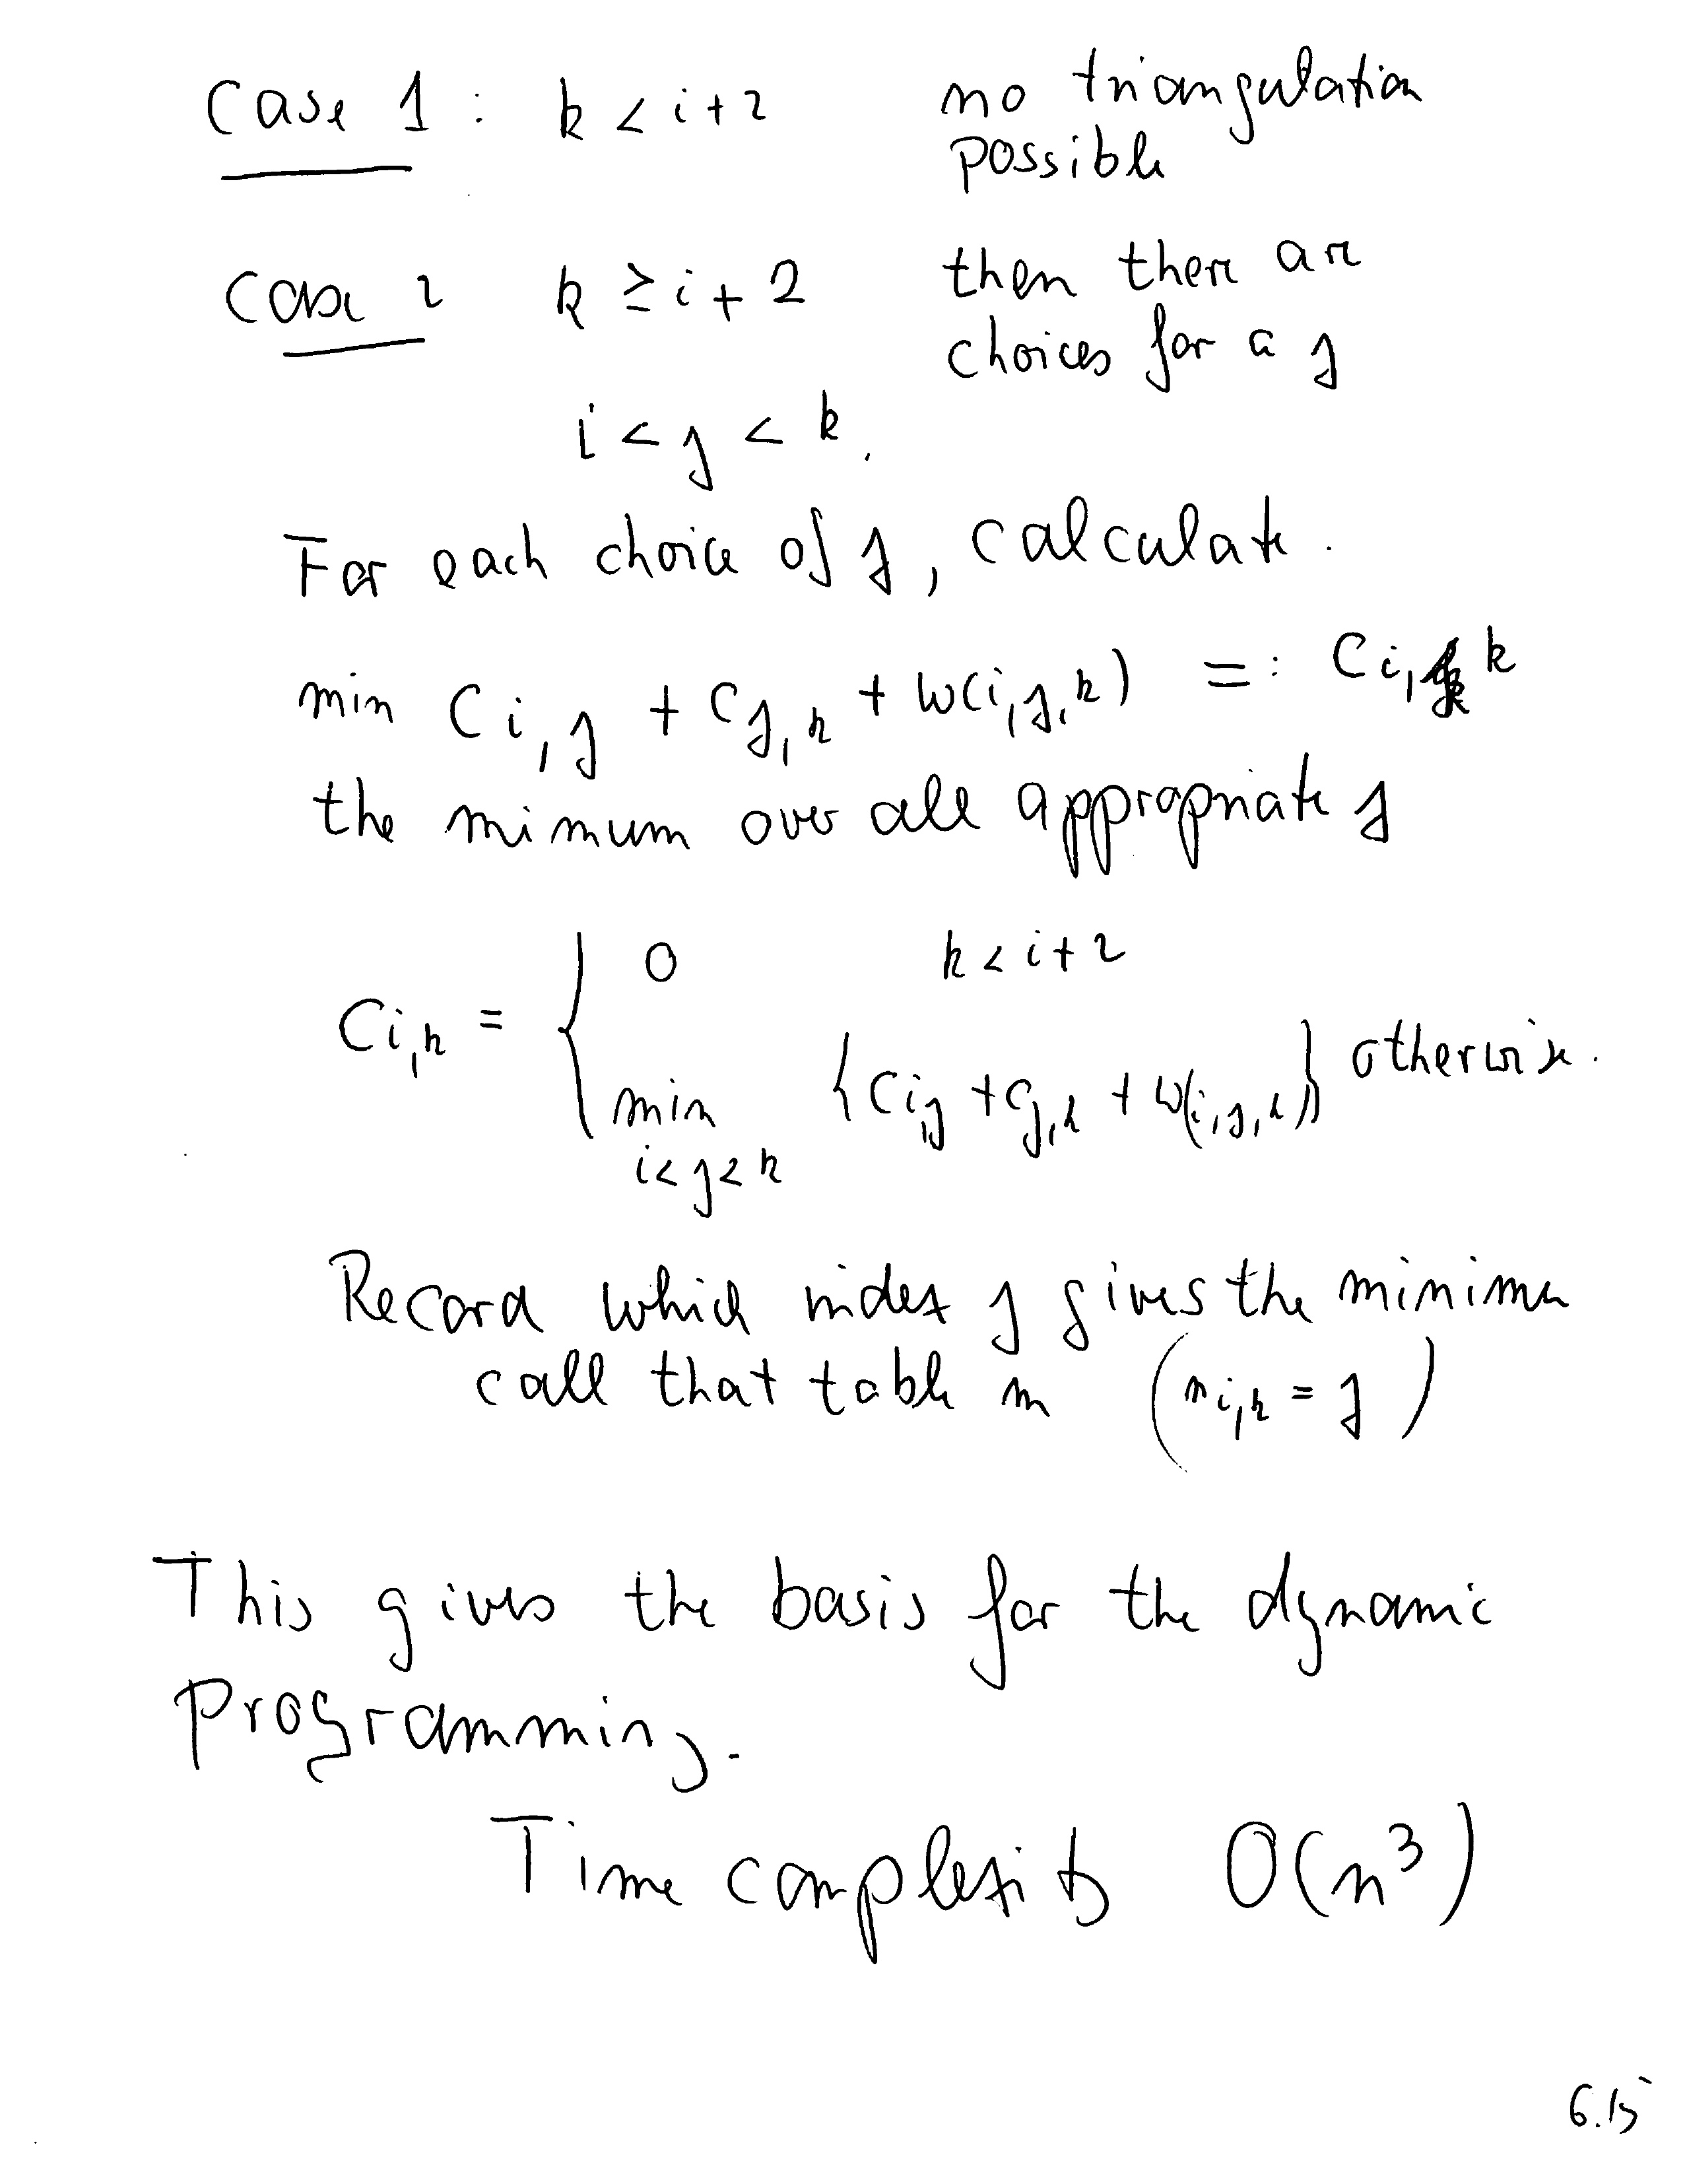 Case 1 : k < i+2 no triangulation
possible
Case 2 k ≥ i+2 then there are
choices for a j
i < j < k.
For each choice of j, calculate.
min Ci,j + Cj,k + w(i,j,k) =: Ci,k
the mimum over all appropriate j
Ci,k = { 0 k < i+2
min {Ci,j + Cj,k + w(i,j,k)} otherwise.
i<j<k
Record which index j gives the minimum
call that table m (mi,k = j)
This gives the basis for the dynamic
programming.
Time complexity O(n³)
6.15